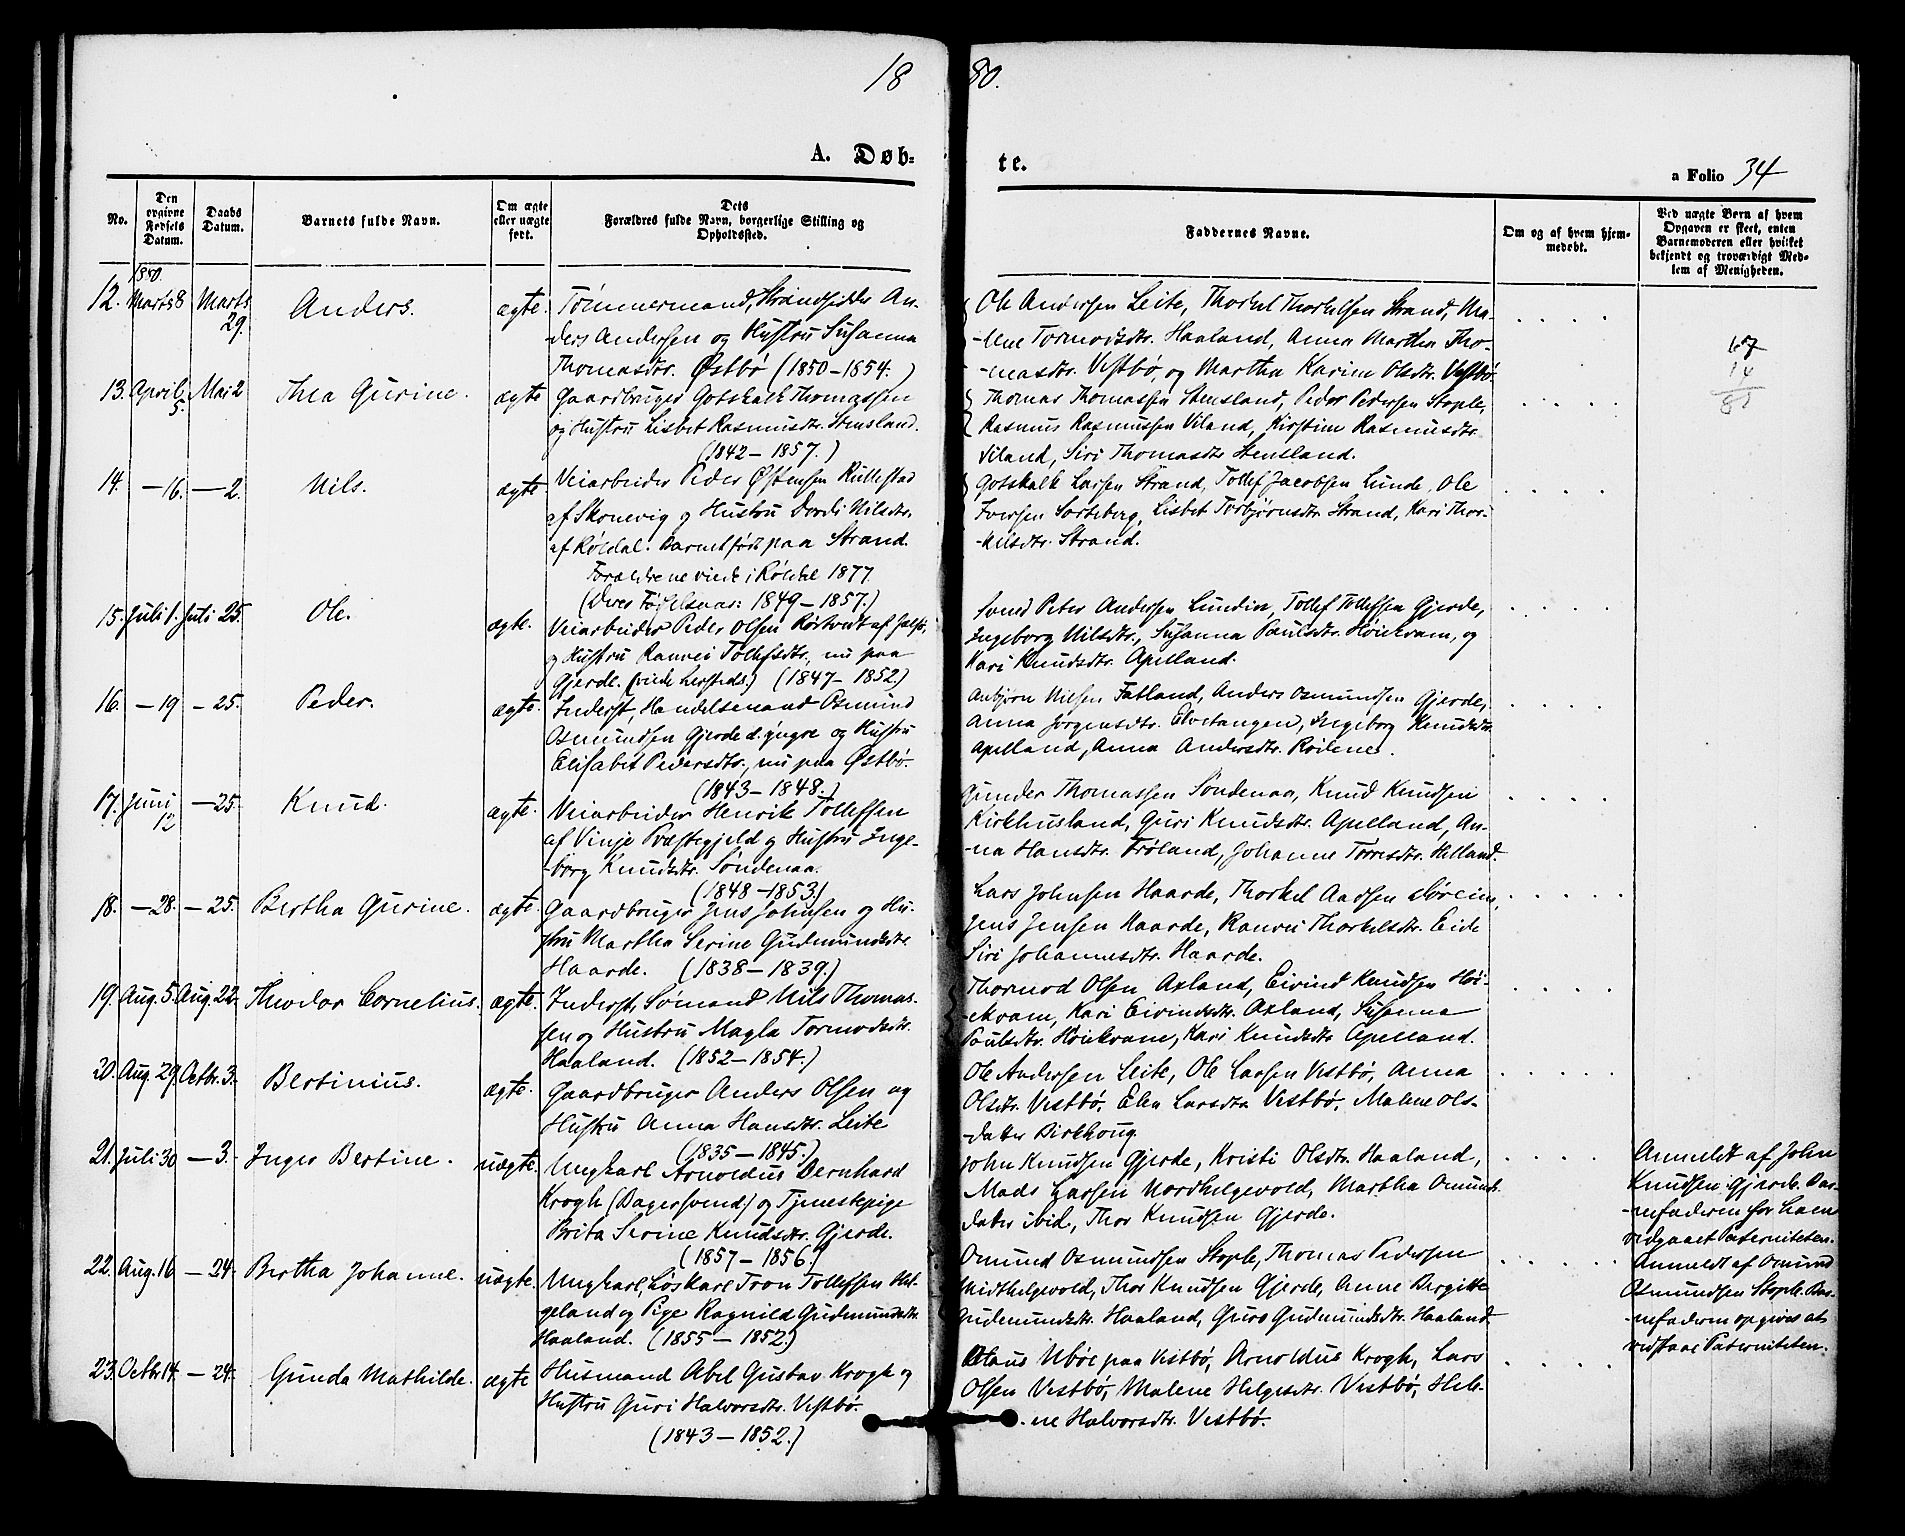 18 80.
A. Døb- te.
a Folio 34
No.
Den opgivne Fødsels Datum.
Daabs Datum.
Barnets fulde Navn.
Om ægte eller uægte født.
Dets Forældres fulde Navn, borgerlige Stilling og Opholdssted.
Faddernes Navne.
Om og af hvem hjemmedøbt.
Ved uægte Børn af hvem Opgaven er skeet, enten Barnemoderen eller hvilket bekjendt og troværdigt Medlem af Menigheden.
1880.
12. Marts 8 Marts 29. Anders. ægte. Tømmermand, Strandsidder An-
ders Andersen og Hustru Susanna
Thomasdtr. Østbö (1850-1854.)
Ole Andersen Leite, Thorkel Thorkelsen Strand, Ma-
-lene Tormodsdtr. Haaland, Anna Martha Tho-
-masdtr. Vestbö, og Martha Karine Olsdtr. Vestbö.
67
14
81
13. April 5. Mai 2 Thea Gurine. ægte Gaardbruger Gotskalk Thomassen
og Hustru Lisbet Rasmusdtr. Stensland.
(1842-1857.)
Thomas Thomassen Stensland, Peder Pedersen Stople,
Rasmus Rasmussen Viland, Kirstine Rasmusdtr.
Viland, Siri Thomasdtr. Stensland.
14. -16. -2. Nils. ægte Veiarbeider Peder Østensen Rullestad
af Skonevig og Hustru Dordi Nilsdtr.
af Röldal. Barnet født paa Strand.
Forældrene viede i Röldal 1877.
(Deres Fødselsaar: 1849-1857.)
Gotskalk Larsen Strand, Tollef Jacobsen Lunde, Ole
Iversen Sorteberg, Lisbet Torbjörnsdtr. Strand, Kari Thor-
-kilsdtr. Strand.
15. Juli 1. Juli 25. Ole. ægte. Veiarbeider Peder Olsen
og Hustru Ranvei Tollefsdtr., nu paa
Gjerde. (viede hersteds.) (1847-1852.)
Svend Peter Andersen Lundin, Tollef Tollefsen Gjerde,
Ingeborg Nilsdtr., Susanna Paulsdtr. Höiekvam, og
Kari Knudsdtr. Apelland.
16. -19 -25. Peder. ægte. Inderst, Handelsmand Osmund
Osmundsen Gjerde d. yngre og Hustru
Elisabet Pedersdtr., nu paa Østbö.
(1843-1848.)
Anbjörn Nilsen Fatland, Anders Osmundsen Gjerde,
Anna Jörgensdtr. Elvetangen, Ingeborg Knudsdtr.
Apelland, Anna Andersdtr. Röilene.
17. Juni 12 -25. Knud. ægte. Veiarbeider Henrik Tollefsen
af Vinje Præstegjeld og Hustru Inge-
-borg Knudsdtr. Söndenaa.
(1848-1853.)
Gunder Thomassen Söndenaa, Knud Knudsen
Kirkhusland, Guri Knudsdtr. Apelland, An-
-na Hansdtr. Fröland, Johanne Torresdtr. Helland.
18. -28. -25. Bertha Gurine. ægte. Gaardbruger Jens Johnsen og Hu-
stru Martha Serine Gudmundsdtr.
Haarde. (1838-1839.)
Lars Johnsen Haarde, Thorkel Aadsen Söreim,
Jens Jensen Haarde, Ranvei Thorkelsdtr. Eide
Siri Johannesdtr. Haarde.
19. Aug. 5. Aug. 22. Theodor Cornelius. ægte. Inderst, Sømand Nils Thomas-
sen og Hustru Magla Tormodsdtr.
Haaland. (1852-1854.)
Thormod Olsen Axland, Eivind Knudsen Höi-
-ekvam, Kari Eivindsdtr. Axland, Susanna
Paulsdtr. Höiekvam, Kari Knudsdtr. Apelland.
20. Aug. 29. Octbr. 3. Bertinius. ægte. Gaardbruger Anders Olsen og
Hustru Anna Hansdtr. Leite
(1835-1845.)
Ole Andersen Leite, Ole Larsen Vestbö, Anna
Olsdtr. Vestbö, Elen Larsdtr. Vestbö, Malene Ols-
-datter Birkhoug.
21. Juli 30 -3. Inger Bertine. uægte. Ungkarl Arnoldus Bernhard
Krogh (Bagersvend) og Tjenestepige
Brita Serine Knudsdtr. Gjerde.
(1857-1856.)
John Knudsen Gjerde, Kristi Olsdtr. Haaland,
Mads Larsen Nordhelgevold, Martha Omunds-
datter ibid, Thor Knudsen Gjerde.
Anmeldt af John
Knudsen Gjerde. Bar-
-nefaderen har
vedgaaet Paterniteten.
22. Aug. 16 -24. Bertha Johanne. uægte. Ungkarl, Löskarl Tron Tollefsen Hel-
geland og Pige Ragnild Gudmundsdtr.
Haaland. (1855-1852.)
Omund Osmundsen Stople, Thomas Pedersen
Midthelgevold, Thor Knudsen Gjerde, Anne Bergitte
Gudmundsdtr. Haaland, Guro Gudmundsdtr. Haaland.
Anmeldt af Omund
Osmundsen Stople. Bar-
-nefaderen opgives at
vedstaae Paterniteten.
23. Octbr. 14. -24. Gunda Mathilde. ægte Husmand Abel Gustav Krogh og
Hustru Guri Halvorsdtr. Vestbö.
(1843-1852.)
Olaus Uböe paa Vestbö, Arnoldus Krogh, Lars
Olsen Vestbö, Malene Helgesdtr. Vestbö, Hele-
-ne Halvorsdtr. Vestbö.